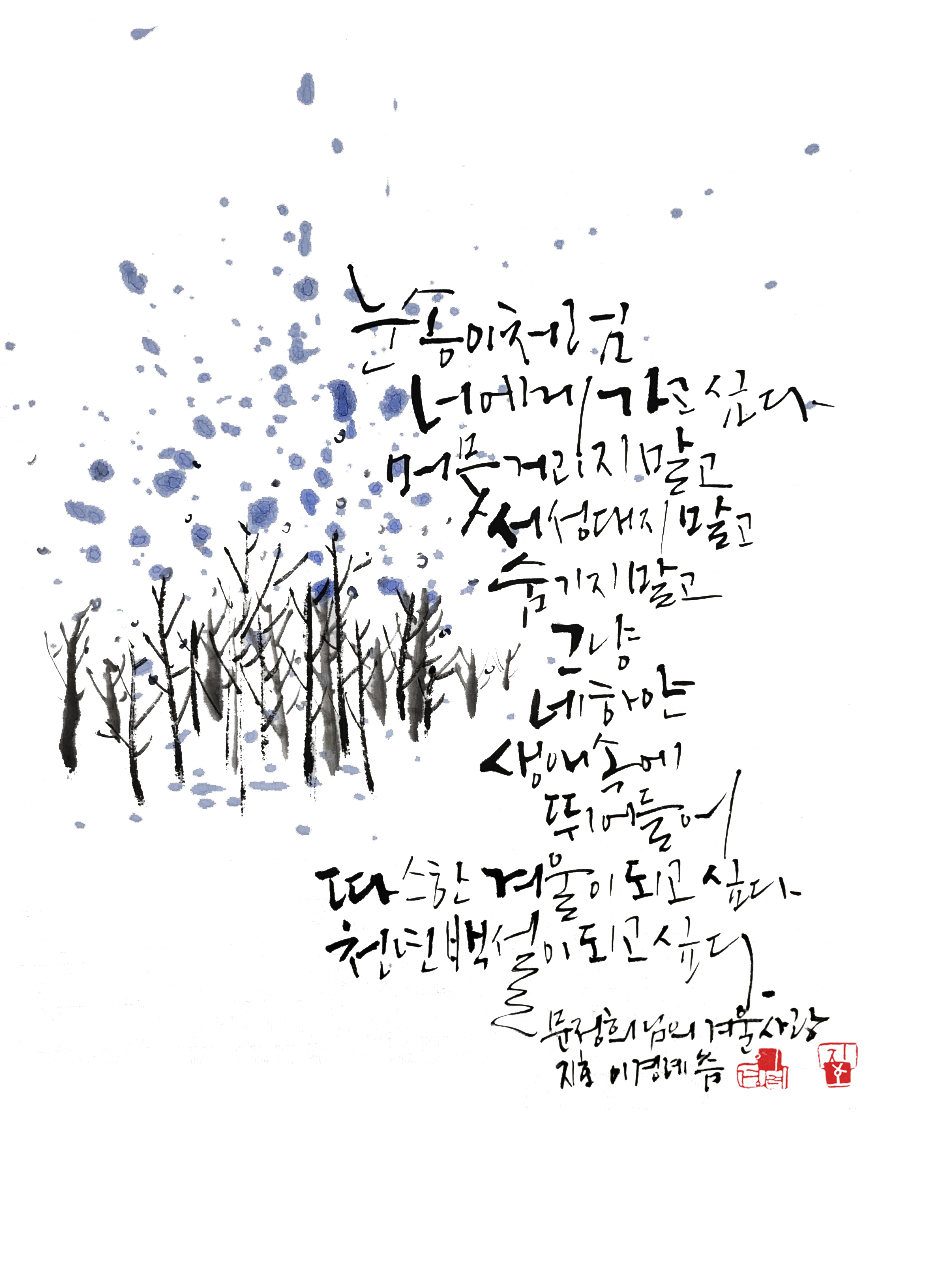 눈송이처럼
너에게 가고 싶다.
머뭇거리지 말고
서성대지 말고
숨기지 말고
그냥
네 하얀
생애 속에
뛰어들어
따스한 겨울이 되고 싶다.
천년 백설이 되고 싶다.
문정희님의 겨울사랑
지호 이경례 씀
지호